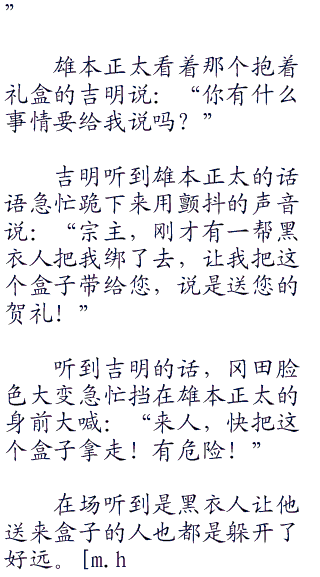 ”
雄本正太看着那个抱着
礼盒的吉明说：“你有什么
事情要给我说吗？”
吉明听到雄本正太的话
语急忙跪下来用颤抖的声音
说：“宗主，刚才有一帮黑
衣人把我绑了去，让我把这
个盒子带给您，说是送您的
贺礼！”
听到吉明的话，冈田脸
色大变急忙挡在雄本正太的
身前大喊：“来人，快把这
个盒子拿走！有危险！”
在场听到是黑衣人让他
送来盒子的人也都是躲开了
好远。[m.h